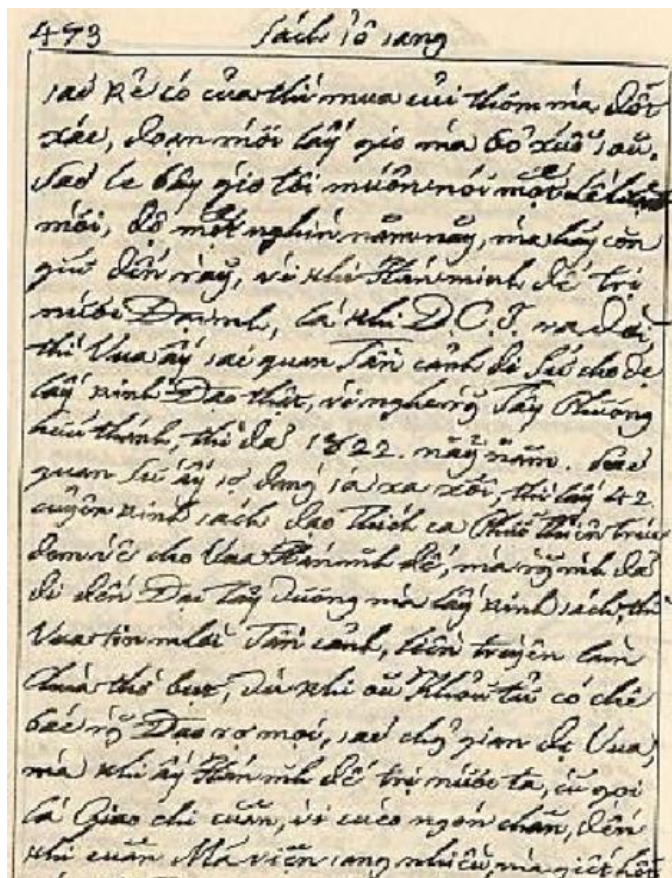 473 Sách sổ sang
sau kẻ có của thì mua củi thơm mà đốt
xác, đoạn mới lấy gio mà bỏ xuỗ soũ.
Sau le bây giờ tôi muốn nói một
mới, độ một nghìn năm nãy, mà hãy còn
giữ đến nay, vì khi Hán minh đế trị
nước Đại minh, là khi D.C.J. ra đời,
thì Vua ấy sai quan Tần cảnh đi Sứ cho để
lấy kinh Đạo thật, vì nghe rằ̃ Tây Phương
hữu thánh, thì đã 1822. nãy năm. Sau
quan Sứ ấy sợ đàng sá xa xôi, thì lấy 42
cuyển kinh sách đạo Thích ca Phuế thiên trúc
đem về cho Vua Hán mĩh đế, mà rằ̃ mìh đã
đi đến Đại tây dương mà lấy kinh sách, thì
Vua tin mlời Tần cảnh, liền truyền làm
Chùa thờ bụt, dù khi oũ Khổũ tử có chê
bác rằ̃ Đạo rợ mọi, sau chữ gian dị Vua,
mà khi ấy Hán mĩh đế trị nước ta, cũ gọi
là Giao chỉ cuận, vì cùo ngón chân, đến
khi cuân Mã viện sang nhiều, mà giết hết